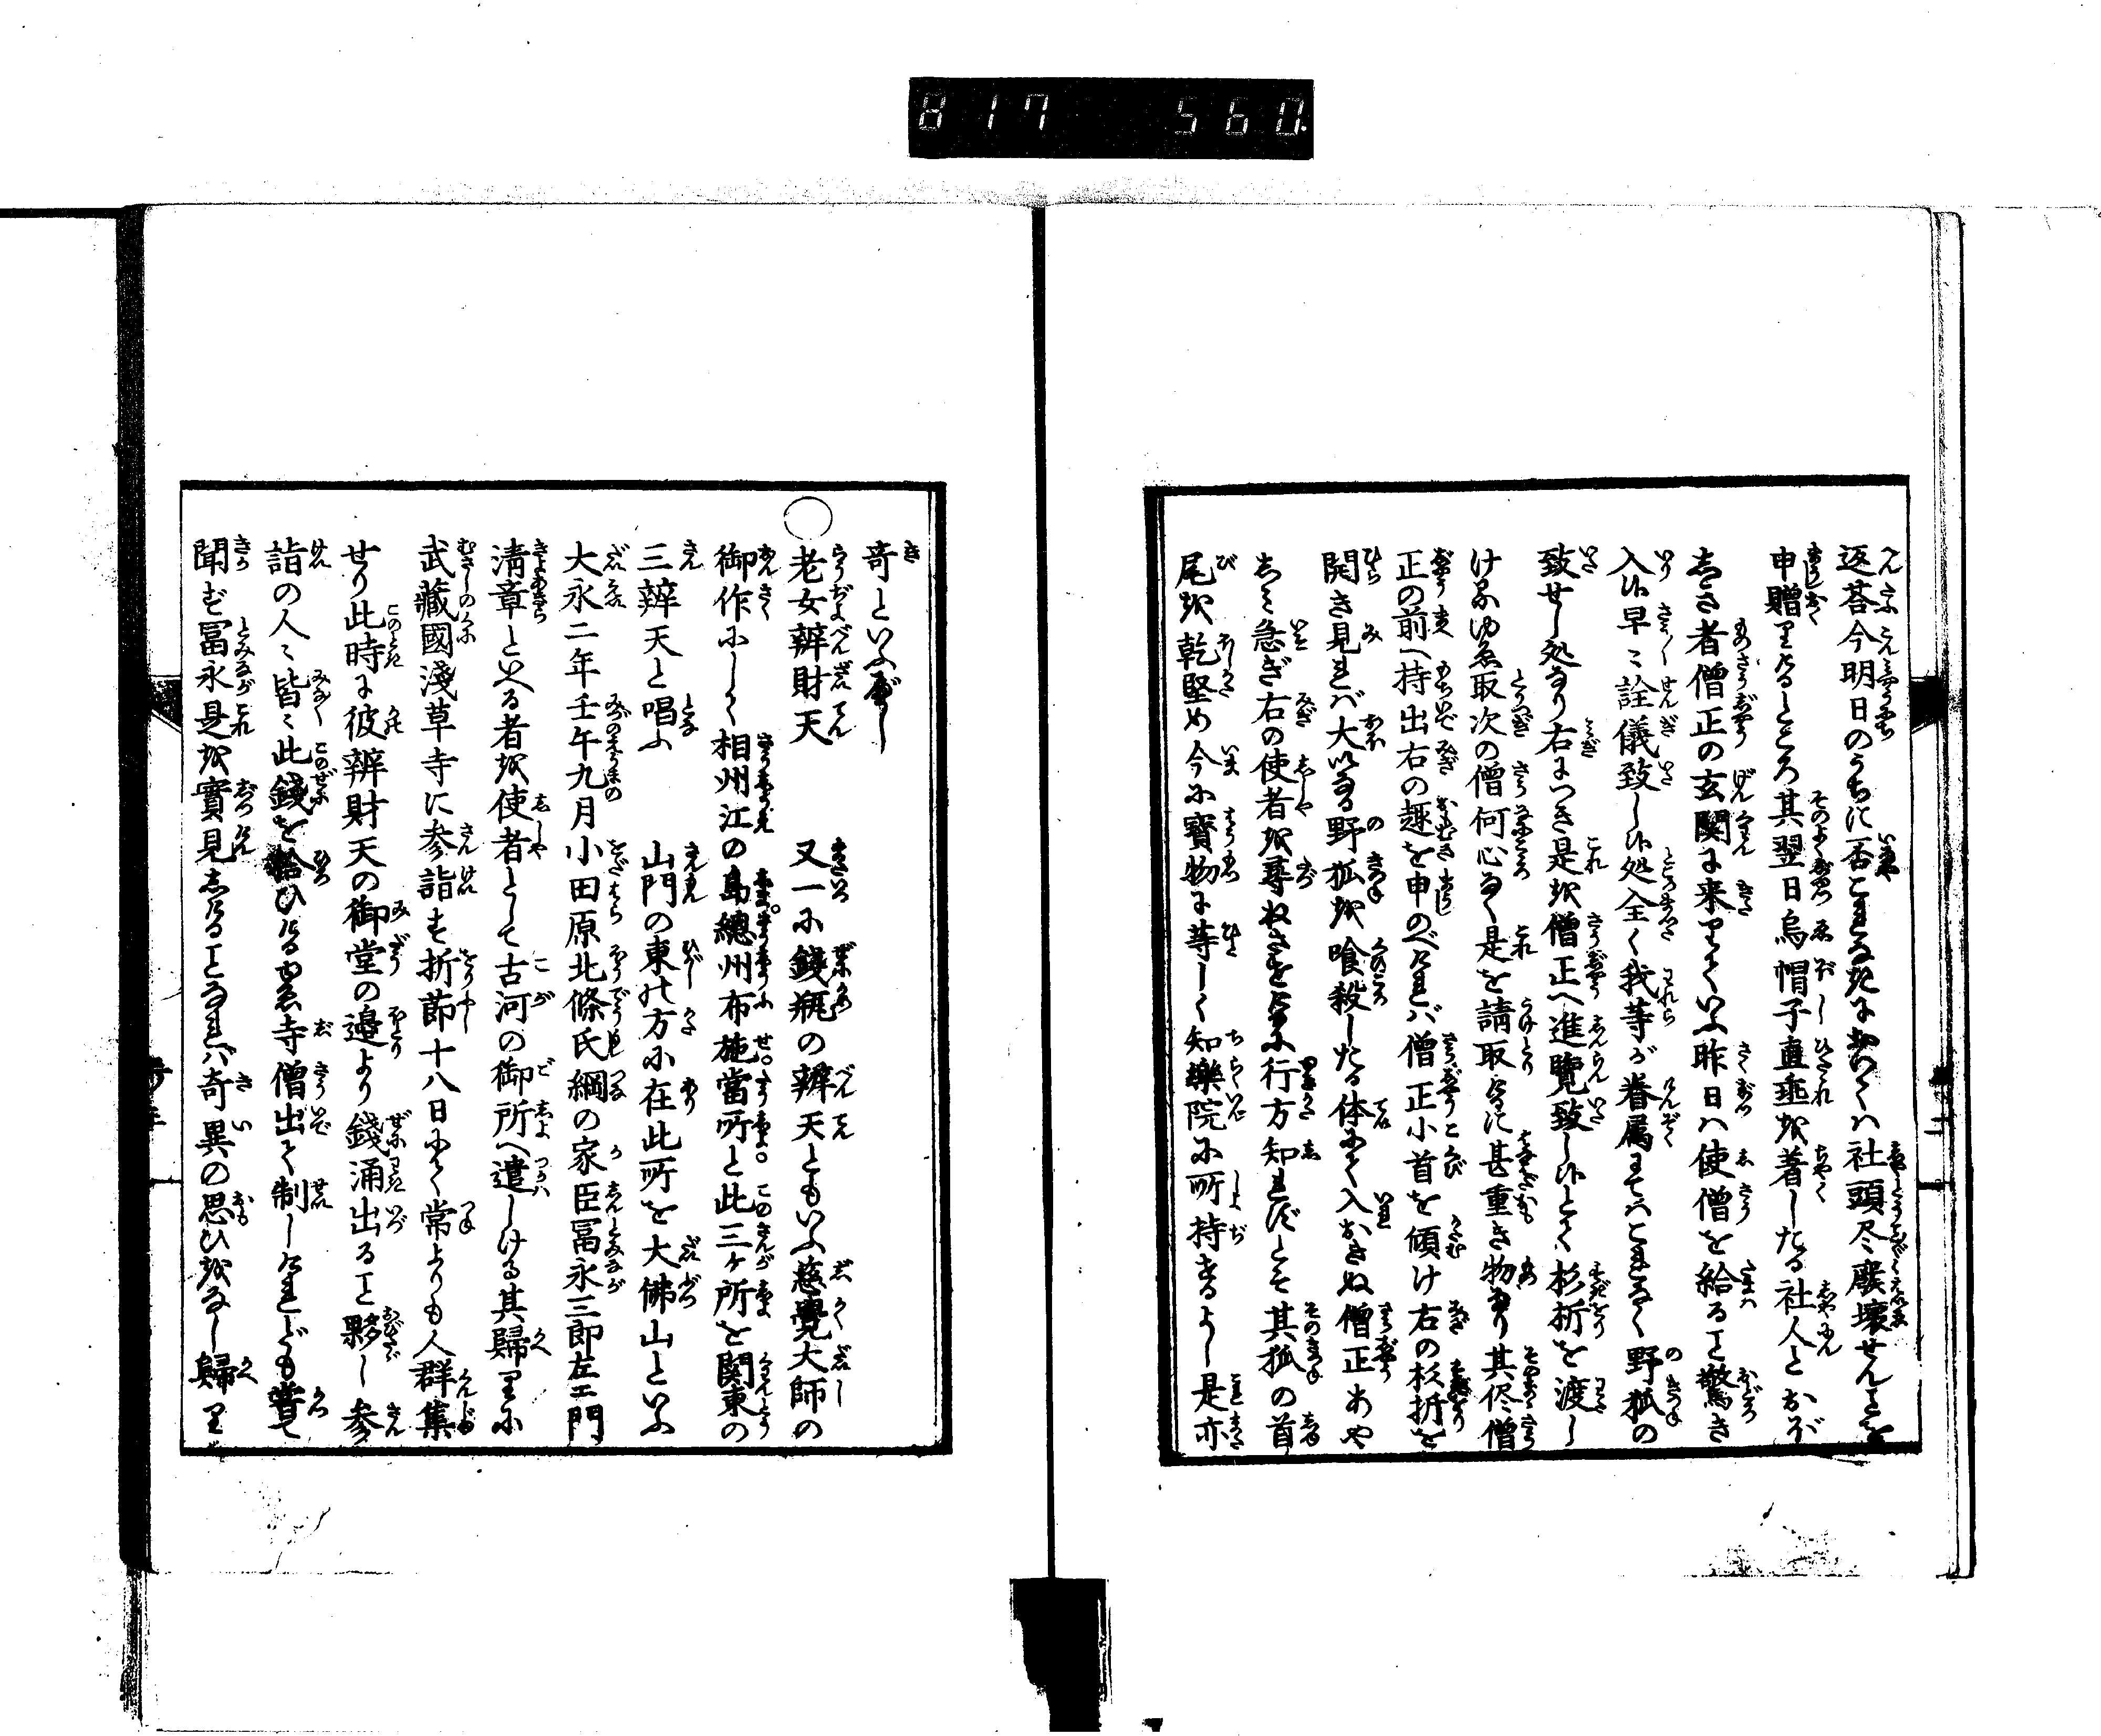 817 560.
返荅今明日のうちに否これなきにおゐてハ社頭尽く廢壞せんよしを
申贈りけるところ其翌日烏帽子直垂を著したる社人とおぼ
しき者僧正の玄関に来りていふ昨日ハ使僧を給ると驚き
入候早々詮儀致し候処全く我等が眷属にてハこれなく野狐の
致せし処なり右につき是を僧正へ進覽致し候とて杉折を渡し
けるゆゑ取次の僧何心なく是を請取しに甚重き物なり其侭僧
正の前へ持出右の趣を申のべけれバ僧正小首を傾け右の杉折を
開き見れバ大いなる野狐を喰殺したる体にて入おきぬ僧正あや
しミ急ぎ右の使者を尋ねさせしに行方知れずとぞ其狐の首
尾を乾堅め今に寳物に等しく知樂院に所持するよし是亦
奇といふべし
○老女辨財天 又一に錢瓶の辨天ともいふ慈覺大師の
御作にして相州江の島總州布施當所と此三ヶ所を関東の
三辨天と唱ふ 山門の東の方に在此所を大佛山といふ
大永二年壬午九月小田原北條氏綱の家臣冨永三郎左エ門
淸章といへる者を使者として古河の御所へ遣しける其歸りに
武藏國淺草寺に参詣す折節十八日にて常よりも人群集
せり此時に彼辨財天の御堂の邉より錢涌出ると夥し参
詣の人々皆々此錢を拾ひけるゆゑ寺僧出て制しけれども嘗て
聞ず冨永是を實見しけるとなれバ奇異の思ひをなし歸り